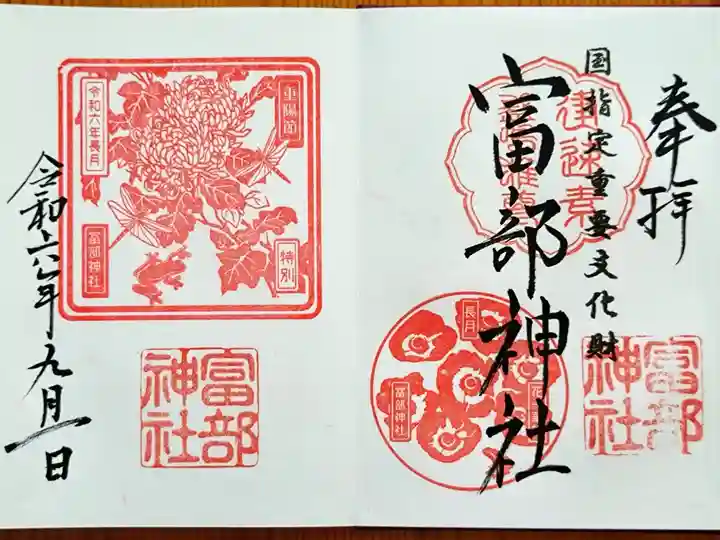 奉拝
国指定重要文化財
富部神社
建速素
富部神社
長月
富部神社
重陽節
令和六年長月
特別
富部神社
富部神社
令和六年九月一日